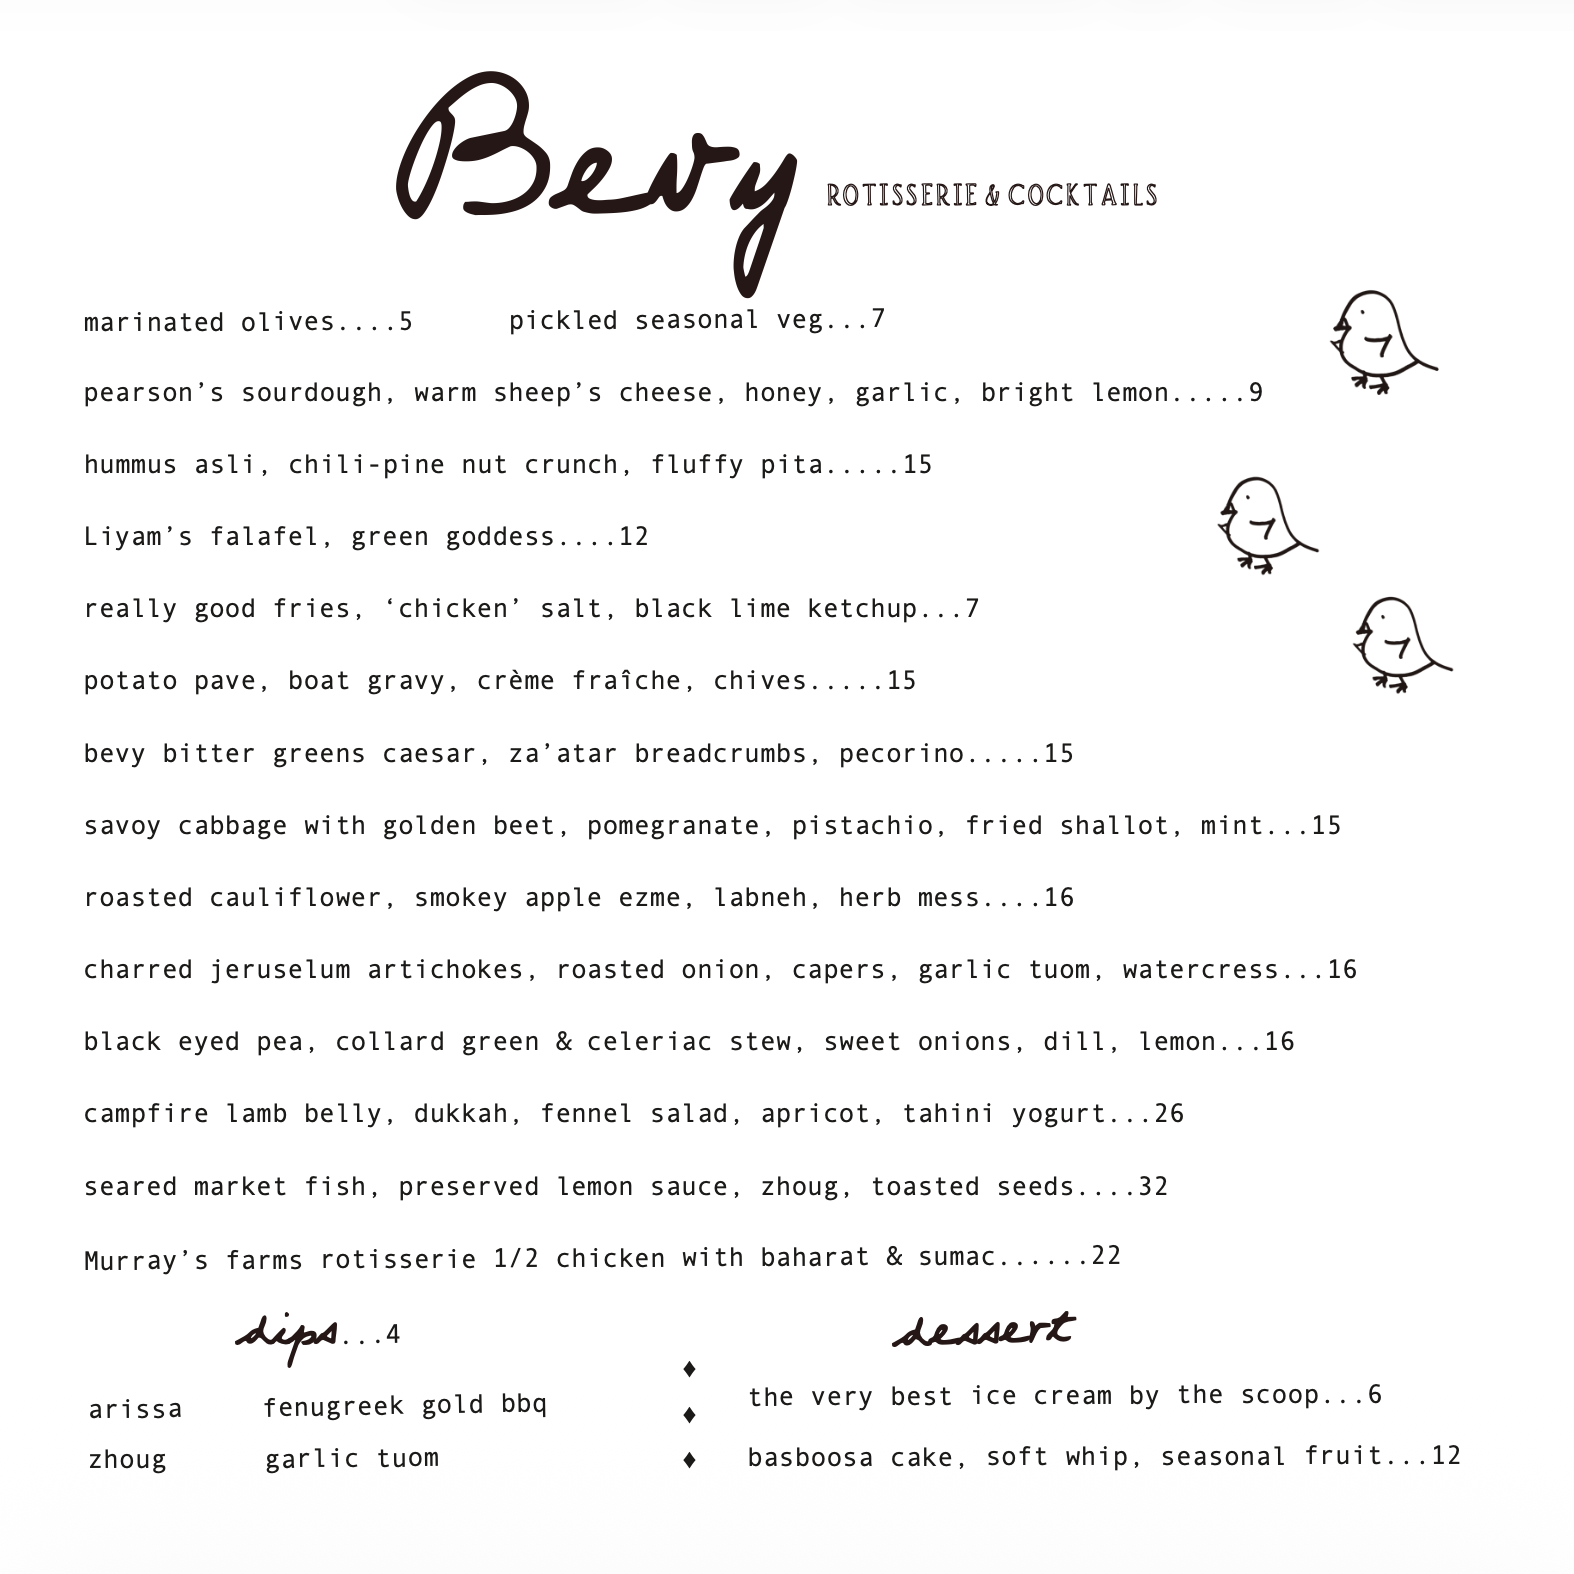 Bevy ROTISSERIE & COCKTAILS
marinated olives....5 pickled seasonal veg...7
pearson’s sourdough, warm sheep’s cheese, honey, garlic, bright lemon.....9
hummus asli, chili-pine nut crunch, fluffy pita.....15
Liyam’s falafel, green goddess....12
really good fries, ‘chicken’ salt, black lime ketchup...7
potato pave, boat gravy, crème fraîche, chives.....15
bevy bitter greens caesar, za’atar breadcrumbs, pecorino.....15
savoy cabbage with golden beet, pomegranate, pistachio, fried shallot, mint...15
roasted cauliflower, smokey apple ezme, labneh, herb mess....16
charred jeruselum artichokes, roasted onion, capers, garlic tuom, watercress...16
black eyed pea, collard green & celeriac stew, sweet onions, dill, lemon...16
campfire lamb belly, dukkah, fennel salad, apricot, tahini yogurt...26
seared market fish, preserved lemon sauce, zhoug, toasted seeds....32
Murray’s farms rotisserie 1/2 chicken with baharat & sumac......22
dips...4
arissa fenugreek gold bbq
zhoug garlic tuom
dessert
the very best ice cream by the scoop...6
basboosa cake, soft whip, seasonal fruit...12